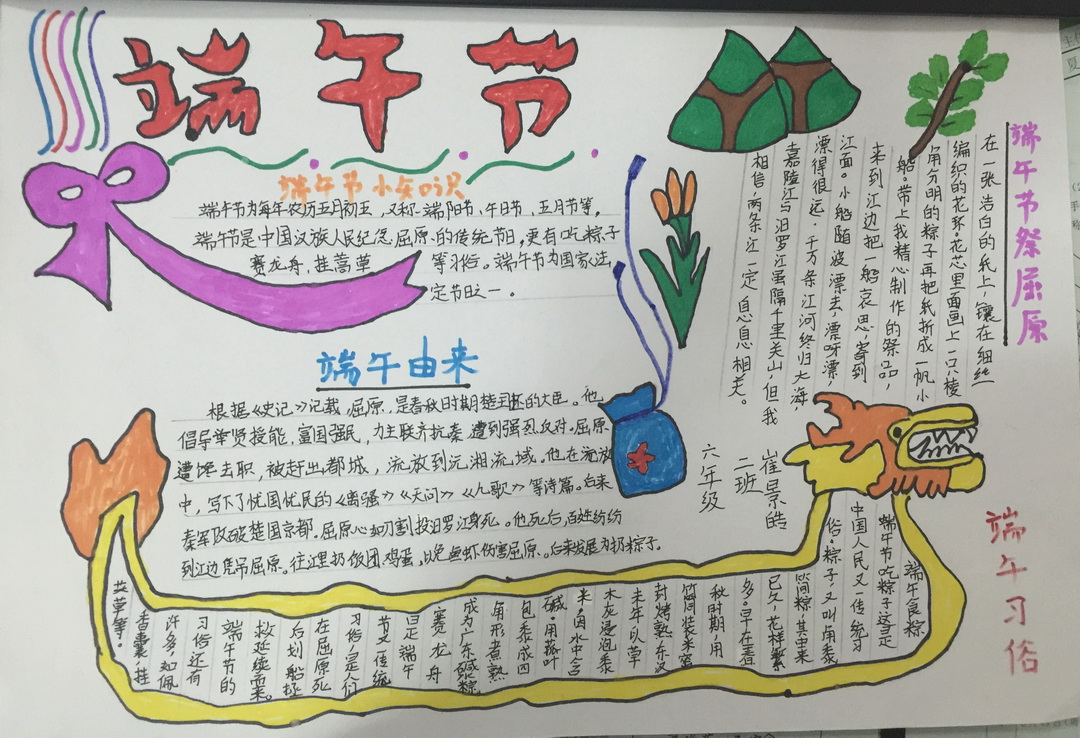 端午节
端午节小知识
端午节为每年农历五月初五，又称端阳节，午日节，五月节等，
端午节是中国汉族人民纪念屈原的传统节日，更有吃粽子
赛龙舟，挂蒿草
等习俗。端午节为国家法
定节日之一。
端午由来
根据《史记》记载，屈原，是春秋时期楚王的大臣。他
倡导举贤授能，富国强民，力主联齐抗秦，遭到强烈反对。屈原
遭馋去职，被赶出都城，流放到沅湘流域。他在流放
中，写下了忧国忧民的《离骚》《天问》《九歌》等诗篇。后来
秦军攻破楚国京都。屈原心如刀割投汨罗江身死。他死后，百姓纷纷
到江边凭吊屈原。往里扔饭团鸡蛋，以免鱼虾伤害屈原。后来发展为扔粽子。
端午节祭屈原
在一张洁白的纸上，镶在细丝
编织的花环。花芯里面画上一只棱
角分明的粽子再把纸折成一帆小
船。带上我精心制作的祭品，
来到江边把一船哀思，寄到
江面。小船随波漂去，漂呀漂，
漂得很远。千万条江河终归大海，
嘉陵江与汨罗江虽隔千里关山，但我
相信，两条江一定息息相关。
崔景皓
二班
六年级
端午习俗
端午食粽
端午节吃粽子这是
中国人民又一传统习
俗。粽子又叫角黍
筒粽其由来
已久，花样繁
多。早在春
秋时期，用
筒装米密
封烤熟东汉
末年以草
木灰浸泡黍
米，因水中含
碱。用菰叶
包黍成四
角形煮熟
成为广东碱粽
赛龙舟
曰是端午
节又一传统
习俗，是人们
在屈原死
后划船拯
救延续而来。
端午节的
习俗还有
许多，如佩
香囊，挂
艾草等。